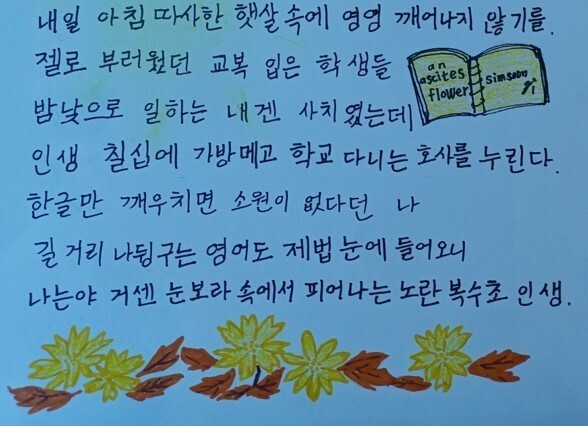 내일 아침 따사한 햇살 속에 영영 깨어나지 않기를.
젤로 부러웠던 교복 입은 학생들
an
ascites
flower
simsoon
밤낮으로 일하는 내겐 사치였는데
인생 칠십에 가방메고 학교 다니는 호사를 누린다.
한글만 깨우치면 소원이 없다던 나
길거리 나뒹구는 영어도 제법 눈에 들어오니
나는야 거센 눈보라 속에서 피어나는 노란 복수초 인생.